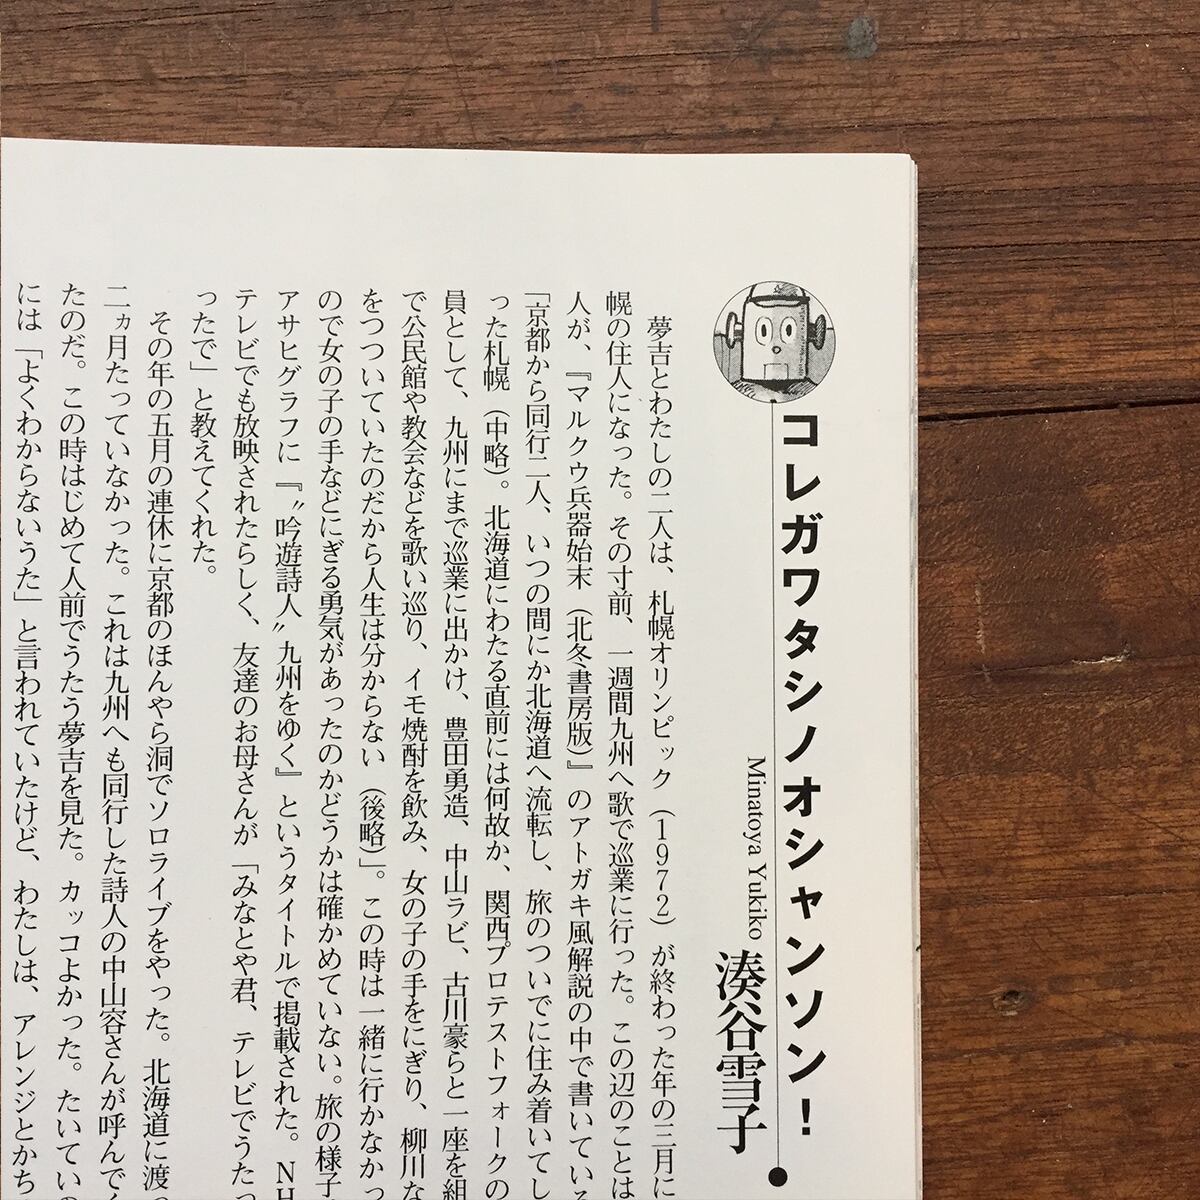 コレガワタシノオシャンソン！
Minatoya Yukiko 湊谷雪子
夢吉とわたしの二人は、札幌オリンピック（1972）が終わった年の三月に
幌の住人になった。その寸前、一週間九州へ歌で巡業に行った。この辺のことは
人が、『マルクウ兵器始末（北冬書房版）』のアトガキ風解説の中で書いている
「京都から同行二人、いつの間にか北海道へ流転し、旅のついでに住み着いてし
った札幌（中略）。北海道にわたる直前には何故か、関西プロテストフォークの
員として、九州にまで巡業に出かけ、豊田勇造、中山ラビ、古川豪らと一座を組
で公民館や教会などを歌い巡り、イモ焼酎を飲み、女の子の手をにぎり、柳川な
をつついていたのだから人生は分からない（後略）」。この時は一緒に行かなかっ
ので女の子の手などにぎる勇気があったのかどうかは確かめていない。旅の様子
アサヒグラフに『〝吟遊詩人〟九州をゆく』というタイトルで掲載された。NH
テレビでも放映されたらしく、友達のお母さんが「みなとや君、テレビでうたっ
ったで」と教えてくれた。
その年の五月の連休に京都のほんやら洞でソロライブをやった。北海道に渡っ
二ヵ月たっていなかった。これは九州へも同行した詩人の中山容さんが呼んでく
たのだ。この時はじめて人前でうたう夢吉を見た。カッコよかった。たいていの
には「よくわからないうた」と言われていたけど、わたしは、アレンジとかち